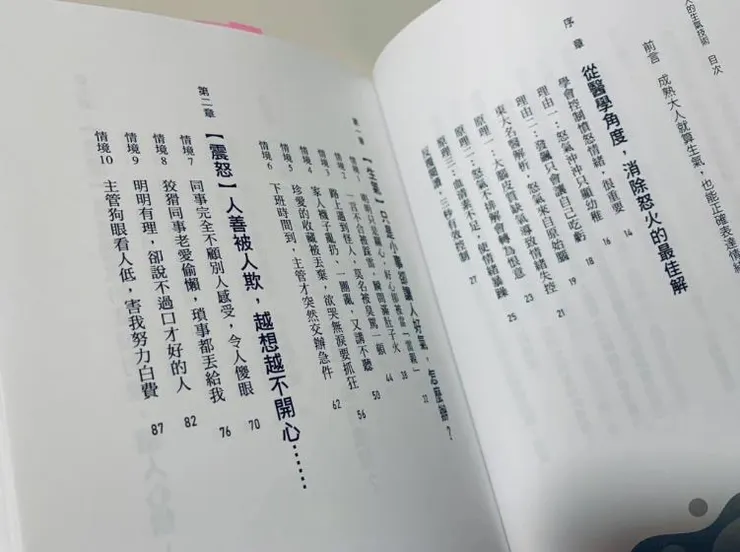 人的生氣技術 目次
前言 成熟大人就算生氣，也能正確表達情緒
序章 從醫學角度，消除怒火的最佳解
學會控制憤怒情緒，很重要 14
理由一：怒氣沖沖只顯幼稚 16
理由二：發飆只會讓自己吃虧 18
東大名醫解析，怒氣來自原始腦 19
原理一：大腦皮質缺氧導致情緒失控 21
原理二：怒氣不排解會轉為恨意 23
原理三：血清素不足，使情緒暴躁 25
反覆閱讀，三秒有效控制 27
第一章 【生氣】只是小事卻讓人好氣，怎麼辦？
情境1 明明只是關心，好心卻被當 32
情境2 一言不合被踩雷，瞬間滿肚子火
情境3 路上遇到怪人，莫名被臭罵一頓 44
情境4 家人襪子亂扔，一團亂，又講不聽 50
情境5 珍愛的收藏被丟棄，欲哭無淚要抓狂 56
情境6 下班時間到，主管才突然交辦急件 62
第二章 【震怒】人善被人欺，越想越不開心……
情境7 同事完全不顧別人感受，令人傻眼 70
情境8 狡猾同事老愛偷懶，瑣事都丟給我 76
情境9 明明有理，卻說不過口才好的人 82
情境10 主管狗眼看人低，害我努力白費 87